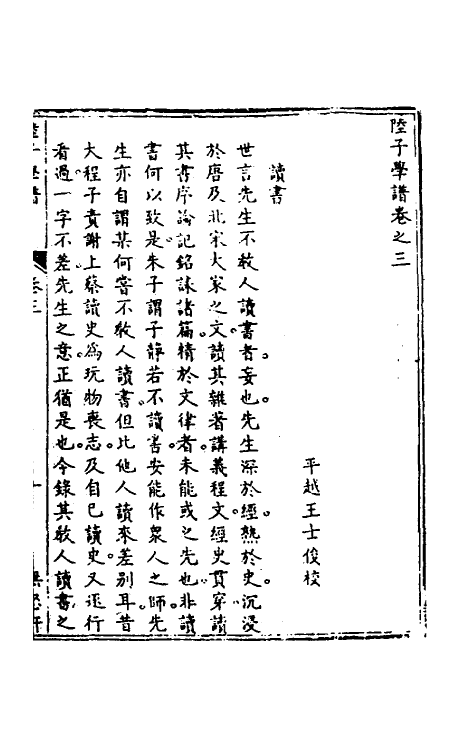 陸子學譜卷之三
平越王士俊校
讀書
世言先生不教人讀書者妄也先生深於經熟於史沉浸
於唐及北宋大家之文讀其雜著講義程文經史貫穿讀
其書序論記銘誄諸篇精於文律者未能或之先也非讀
書何以致是朱子謂子靜若不讀書安能作眾人之師先
生亦自謂某何嘗不教人讀書但比他人讀來差別耳昔
大程子責謝上蔡讀史為玩物喪志及自已讀史又逐行
看過一字不差先生之意正猶是也今錄其教人讀書之
陸子學譜
卷三